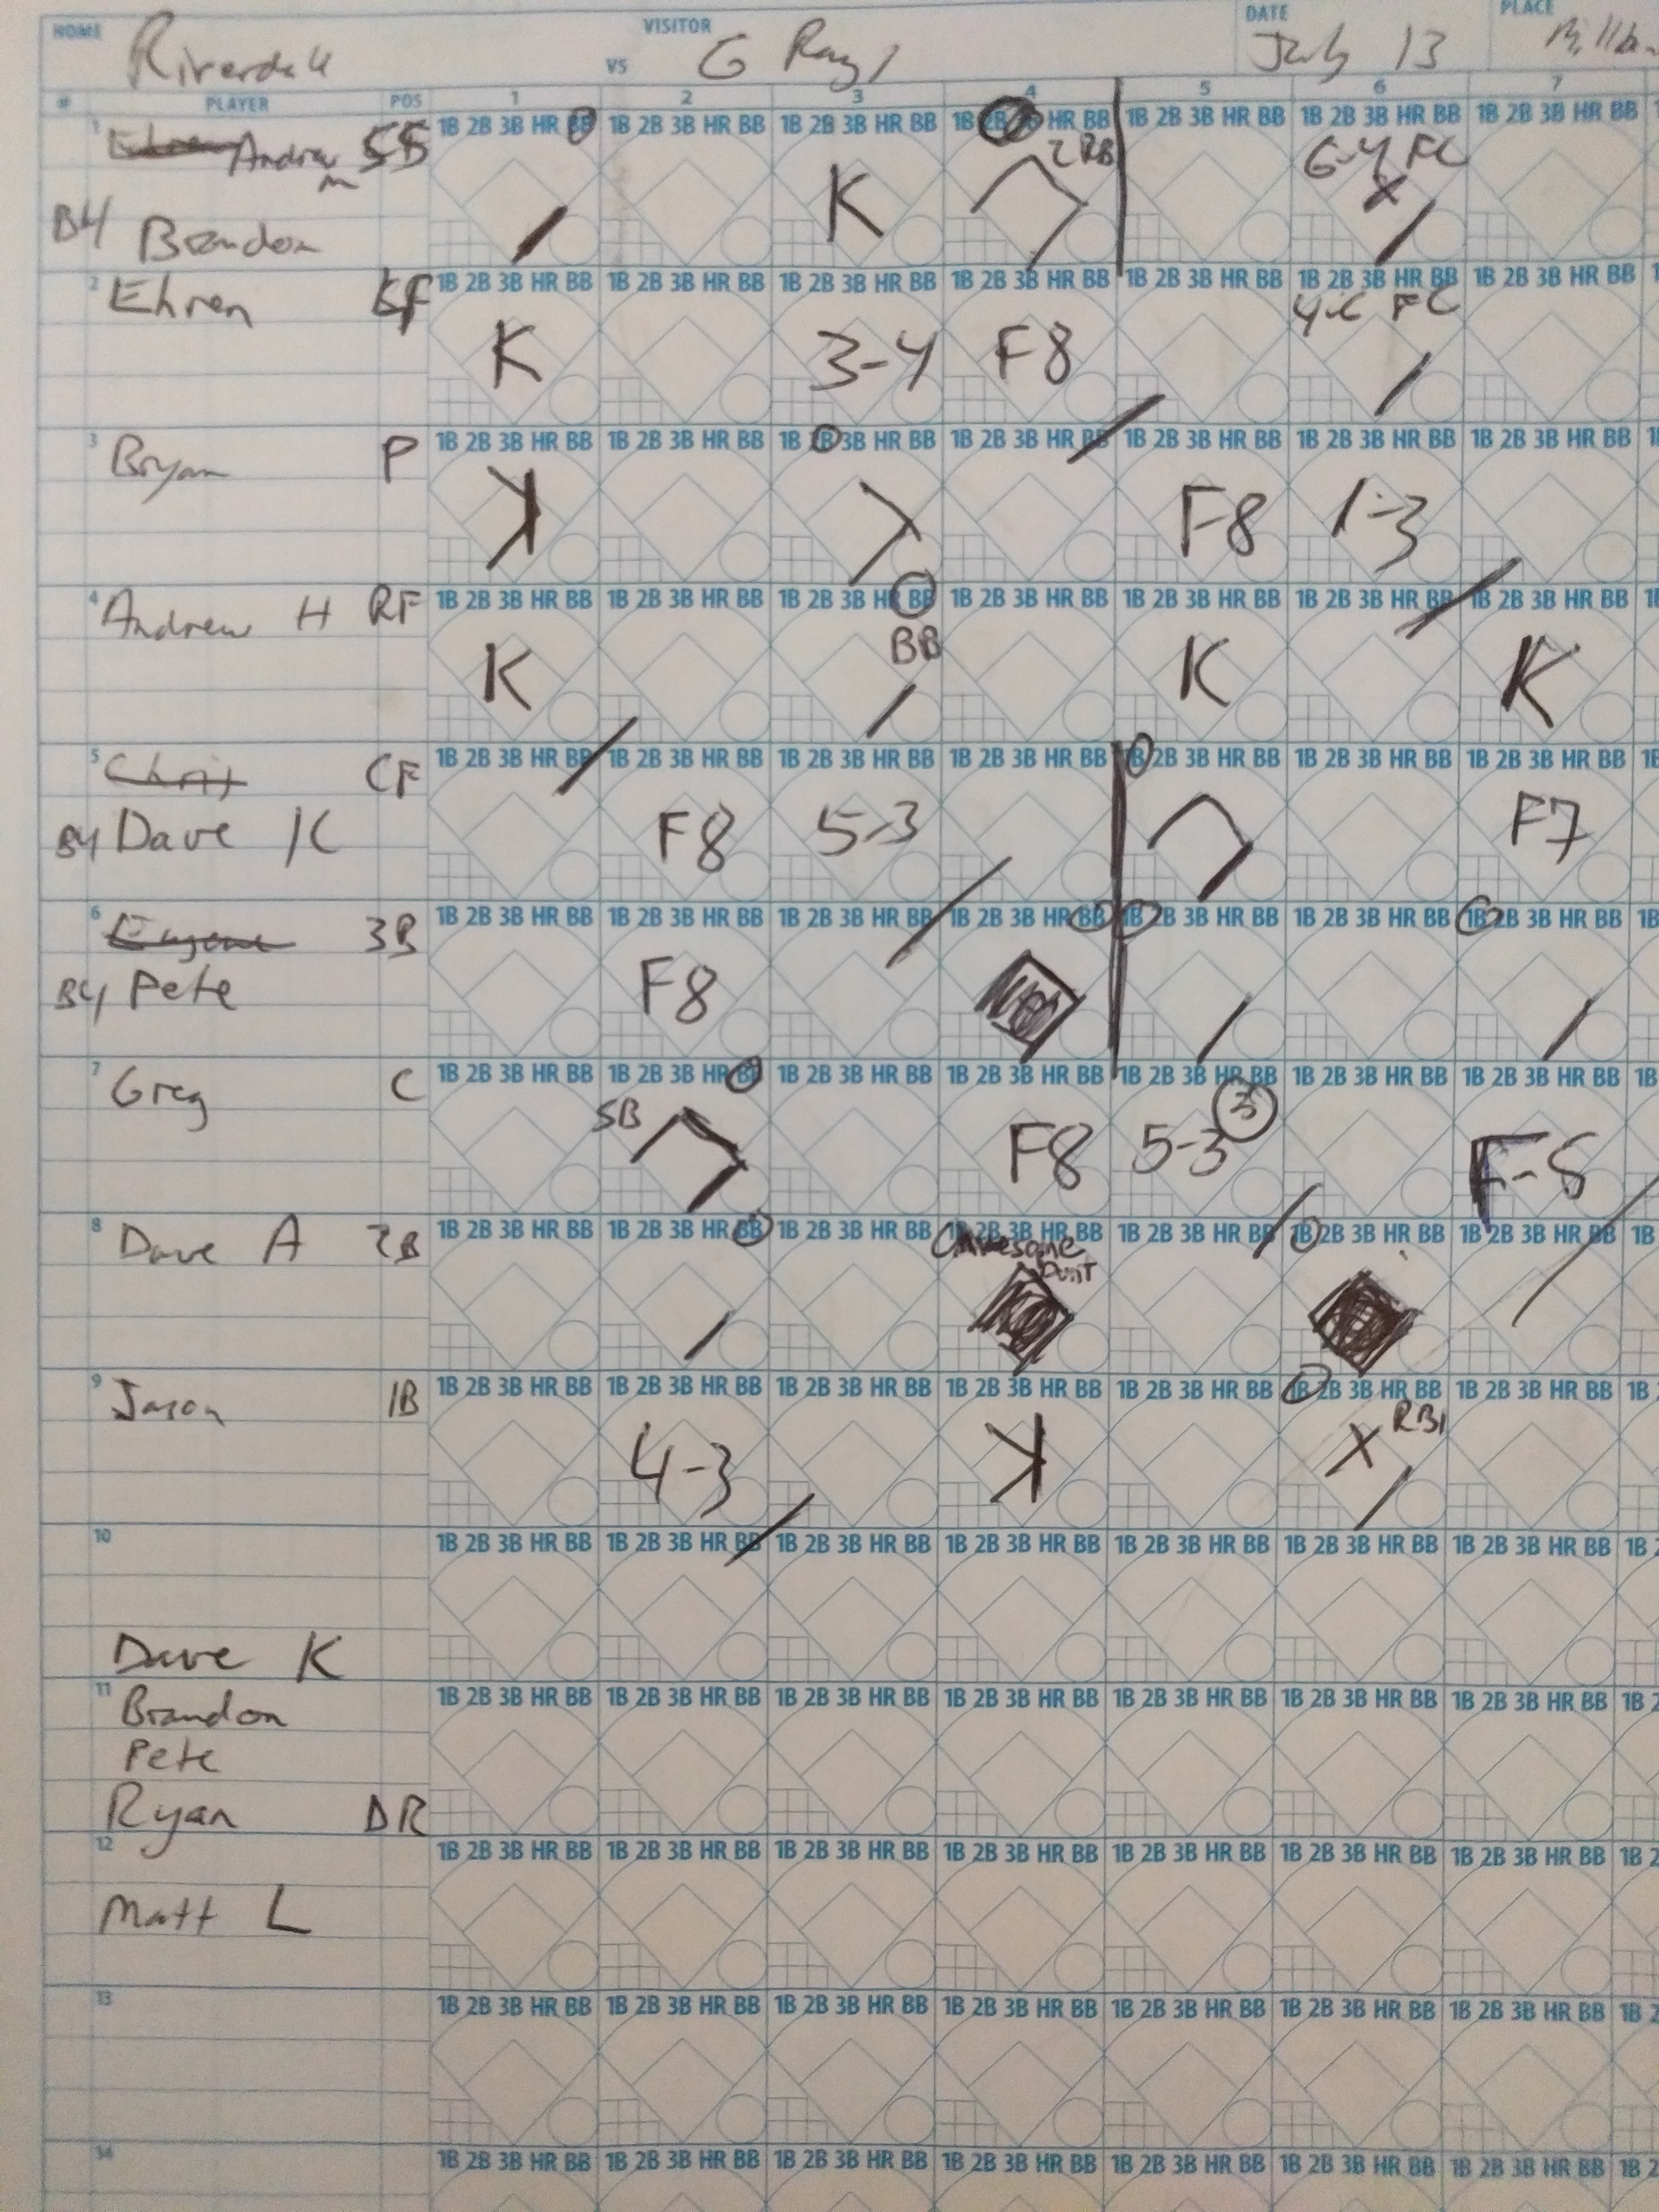 HOME Riverdale VISITOR VS G Rays DATE July 13 PLACE
# PLAYER POS 1 2 3 4 5 6 7
1 Ehren Andrew m SS 1B 2B 3B HR BB 1B 2B 3B HR BB 1B 2B 3B HR BB 1B HR BB 1B 2B 3B HR BB 1B 2B 3B HR BB 1B 2B 3B HR BB
2 RBI 6-4 FC
K X
B4 Brandon
2 Ehren LF 1B 2B 3B HR BB 1B 2B 3B HR BB 1B 2B 3B HR BB 1B 2B 3B HR BB 1B 2B 3B HR BB 1B 2B 3B HR BB 1B 2B 3B HR BB
FC
K 3-4 F8
3 Bryan P 1B 2B 3B HR BB 1B 2B 3B HR BB 1B 2B 3B HR BB 1B 2B 3B HR BB 1B 2B 3B HR BB 1B 2B 3B HR BB 1B 2B 3B HR BB
K F-8 1-3
4 Andrew H RF 1B 2B 3B HR BB 1B 2B 3B HR BB 1B 2B 3B HR BB 1B 2B 3B HR BB 1B 2B 3B HR BB 1B 2B 3B HR BB 1B 2B 3B HR BB
BB
K K K
5 Chris CF 1B 2B 3B HR BB 1B 2B 3B HR BB 1B 2B 3B HR BB 1B 2B 3B HR BB 1B 2B 3B HR BB 1B 2B 3B HR BB 1B 2B 3B HR BB
B4 Dave K F8 5-3 F7
6 Eugene 3B 1B 2B 3B HR BB 1B 2B 3B HR BB 1B 2B 3B HR BB 1B 2B 3B HR BB 1B 2B 3B HR BB 1B 2B 3B HR BB 1B 2B 3B HR BB
B4 Pete F8
7 Greg C 1B 2B 3B HR BB 1B 2B 3B HR BB 1B 2B 3B HR BB 1B 2B 3B HR BB 1B 2B 3B HR BB 1B 2B 3B HR BB 1B 2B 3B HR BB
SB 3
F8 5-3
8 Dave A 2B 1B 2B 3B HR BB 1B 2B 3B HR BB 1B 2B 3B HR BB 1B 2B 3B HR BB 1B 2B 3B HR BB 1B 2B 3B HR BB 1B 2B 3B HR BB
Awesome
Bunt
9 Jason 1B 1B 2B 3B HR BB 1B 2B 3B HR BB 1B 2B 3B HR BB 1B 2B 3B HR BB 1B 2B 3B HR BB 1B 2B 3B HR BB 1B 2B 3B HR BB
RBI
4-3 K X
10 1B 2B 3B HR BB 1B 2B 3B HR BB 1B 2B 3B HR BB 1B 2B 3B HR BB 1B 2B 3B HR BB 1B 2B 3B HR BB 1B 2B 3B HR BB
Dave K
11 1B 2B 3B HR BB 1B 2B 3B HR BB 1B 2B 3B HR BB 1B 2B 3B HR BB 1B 2B 3B HR BB 1B 2B 3B HR BB 1B 2B 3B HR BB
Brandon
Pete
Ryan DR
12 1B 2B 3B HR BB 1B 2B 3B HR BB 1B 2B 3B HR BB 1B 2B 3B HR BB 1B 2B 3B HR BB 1B 2B 3B HR BB 1B 2B 3B HR BB
Matt L
13 1B 2B 3B HR BB 1B 2B 3B HR BB 1B 2B 3B HR BB 1B 2B 3B HR BB 1B 2B 3B HR BB 1B 2B 3B HR BB 1B 2B 3B HR BB
14 1B 2B 3B HR BB 1B 2B 3B HR BB 1B 2B 3B HR BB 1B 2B 3B HR BB 1B 2B 3B HR BB 1B 2B 3B HR BB 1B 2B 3B HR BB